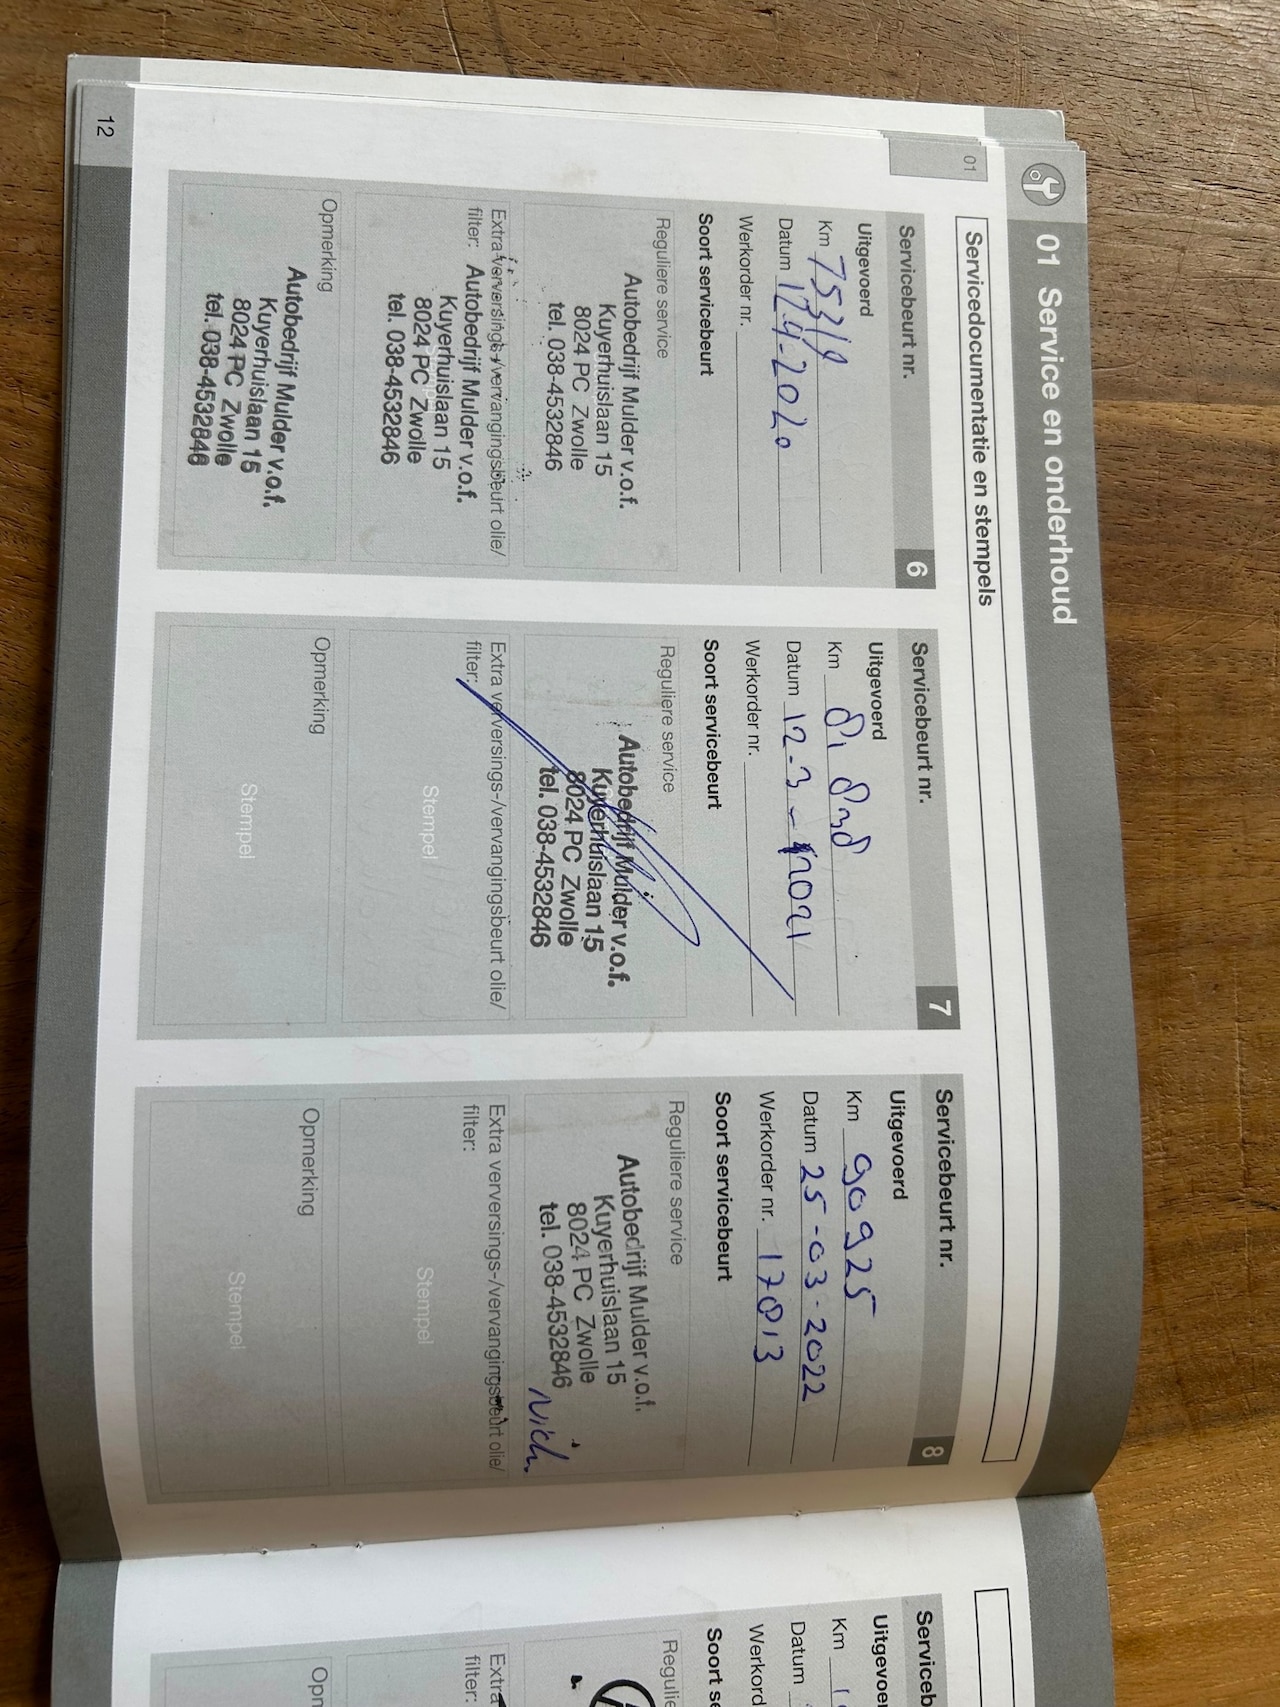 01 Service en onderhoud
01
Servicedocumentatie en stempels
Servicebeurt nr. 6
Uitgevoerd
Km 75319
Datum 17-4-2020
Werkorder nr.
Soort servicebeurt
Reguliere service
Autobedrijf Mulder v.o.f.
Kuyerhuislaan 15
8024 PC Zwolle
tel. 038-4532846
Extra verversings-/vervangingsbeurt olie/
filter:
Autobedrijf Mulder v.o.f.
Kuyerhuislaan 15
8024 PC Zwolle
tel. 038-4532846
Opmerking
Autobedrijf Mulder v.o.f.
Kuyerhuislaan 15
8024 PC Zwolle
tel. 038-4532846
Servicebeurt nr. 7
Uitgevoerd
Km
Datum 12-3-2021
Werkorder nr.
Soort servicebeurt
Reguliere service
Autobedrijf Mulder v.o.f.
Kuyerhuislaan 15
8024 PC Zwolle
tel. 038-4532846
Extra verversings-/vervangingsbeurt olie/
filter:
Stempel
Opmerking
Stempel
Servicebeurt nr. 8
Uitgevoerd
Km 90925
Datum 25-03-2022
Werkorder nr. 17013
Soort servicebeurt
Reguliere service
Autobedrijf Mulder v.o.f.
Kuyerhuislaan 15
8024 PC Zwolle
tel. 038-4532846
Nich.
Extra verversings-/vervangingsbeurt olie/
filter:
Stempel
Opmerking
Stempel
12
Serviceb
Uitgevoer
Km
Datum
Werkord
Soort se
Regulie
Extra
filter:
Opn